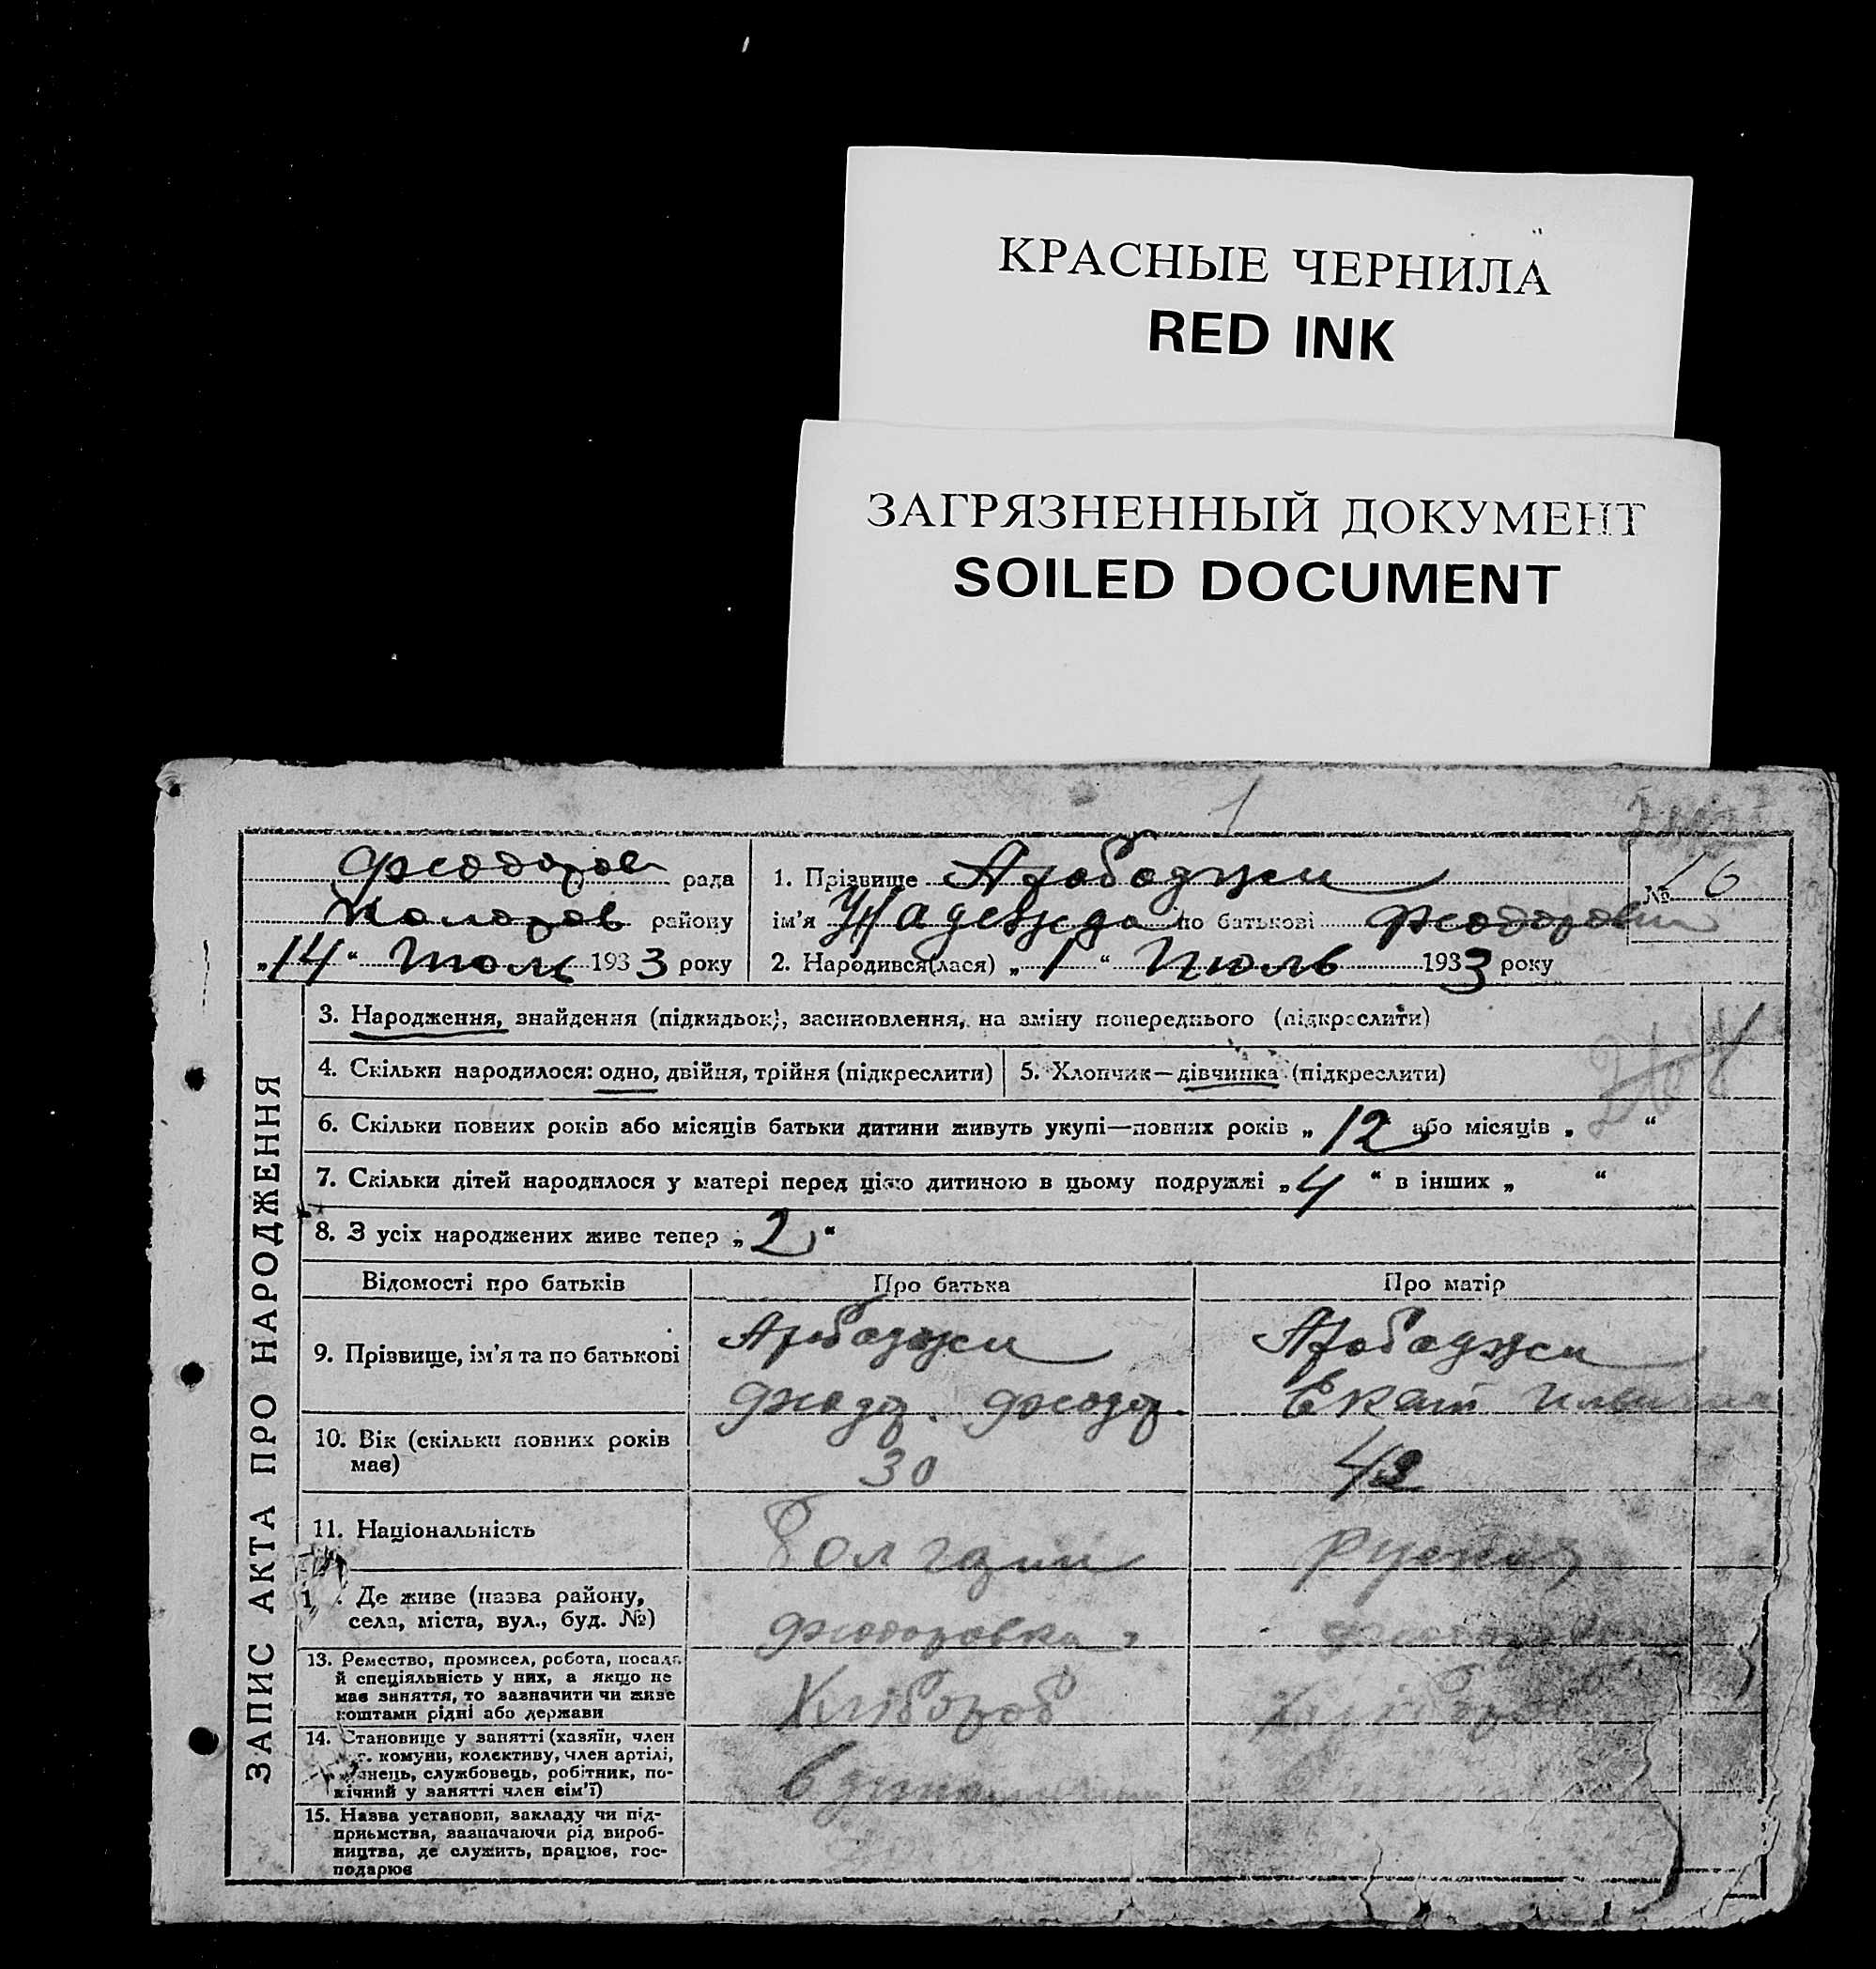 КРАСНЫЕ ЧЕРНИЛА
RED INK
ЗАГРЯЗНЕННЫЙ ДОКУМЕНТ
SOILED DOCUMENT
1
рада
району
„14“ 1933 року
1. Прізвище Арабаджи
№ 16
ім'я Надежда по батькові
2. Народився(лася) „1“ Июль 1933 року
ЗАПИС АКТА ПРО НАРОДЖЕННЯ
3. Народження, знайдення (підкидьок), засиновлення, на зміну попереднього (підкреслити)
4. Скільки народилося: одно, двійня, трійня (підкреслити)
5. Хлопчик—дівчинка (підкреслити)
6. Скільки повних років або місяців батьки дитини живуть укупі—повних років „12 або місяців „ “
7. Скільки дітей народилося у матері перед цією дитиною в цьому подружжі „4“ в інших „ “
8. З усіх народжених живе тепер „2“
Відомості про батьків
Про батька
Про матір
9. Прізвище, ім'я та по батькові
Арбаджи
Арабаджи
Екат
10. Вік (скільки повних років
має)
30
42
11. Національність
Болгарин
Руская
Де живе (назва району,
села, міста, вул., буд. №)
13. Ремество, промисел, робота, посада
й спеціяльність у них, а якщо не
має заняття, то зазначити чи живе
коштами рідні або держави
Хлібороб
Хлібороб
14. Становище у занятті (хазяїн, член
комуни, колективу, член артілі,
службовець, робітник, по-
мічний у занятті член сім'ї)
15. Назва установи, закладу чи під-
приємства, зазначаючи рід вироб-
ництва, де служить, працює, гос-
подарює